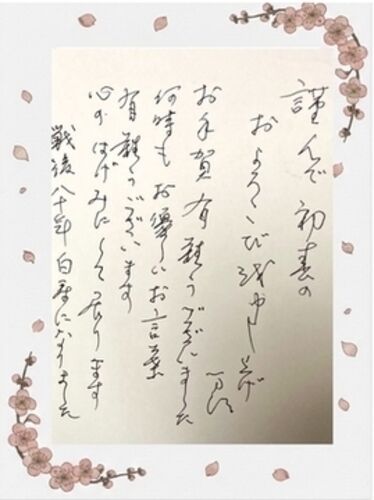 謹んで初春の
およろこび申し上げ
お年賀有難うございました
何時もお優しいお言葉
有難うございます
心のはげみにして居ります
戦後八十年白寿になりました